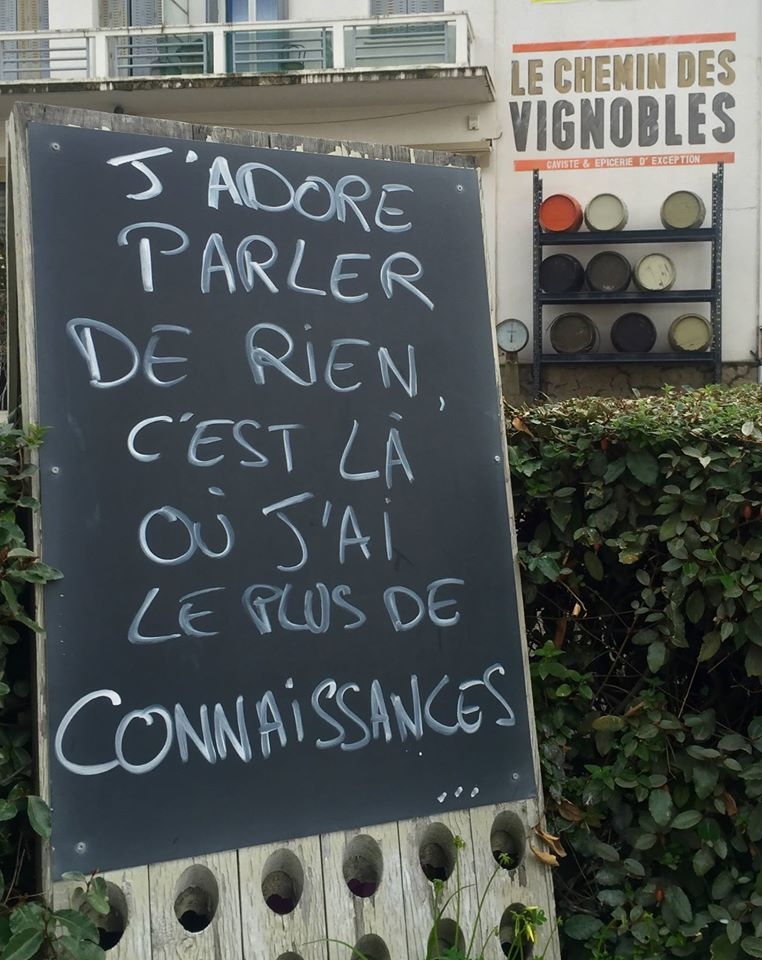 J'ADORE
PARLER
DE RIEN,
C'EST LÀ
OÙ J'AI
LE PLUS DE
CONNAISSANCES
...
LE CHEMIN DES
VIGNOBLES
CAVISTE & EPICERIE D'EXCEPTION